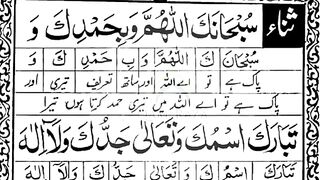 ثناء سُبْحَانَكَ اللّٰهُمَّ وَبِحَمْدِكَ وَ
سُبْحَانَ كَ اللّٰهُمَّ وَ بِ حَمْدِ كَ وَ
پاک ہے تو اے اللہ اور ساتھ تعریف تیری اور
پاک ہے تو اے اللہ میں تیری حمد کرتا ہوں تیرا
تَبَارَكَ اسْمُكَ وَتَعَالٰى جَدُّكَ وَلَآ اِلٰهَ
تَبَارَكَ اسْمُ كَ وَ تَعَالٰى جَدُّ كَ وَ لَآ اِلٰهَ